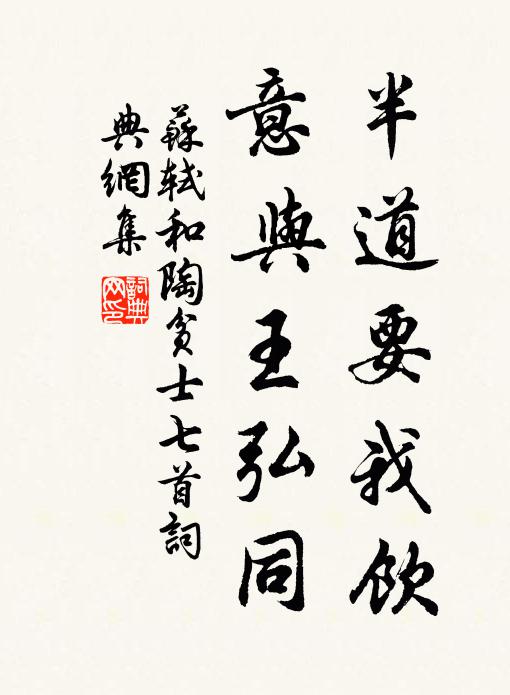 半道要我飲
意與王弘同
蘇軾和陶貧士七首詞
典網集
詞典
网印